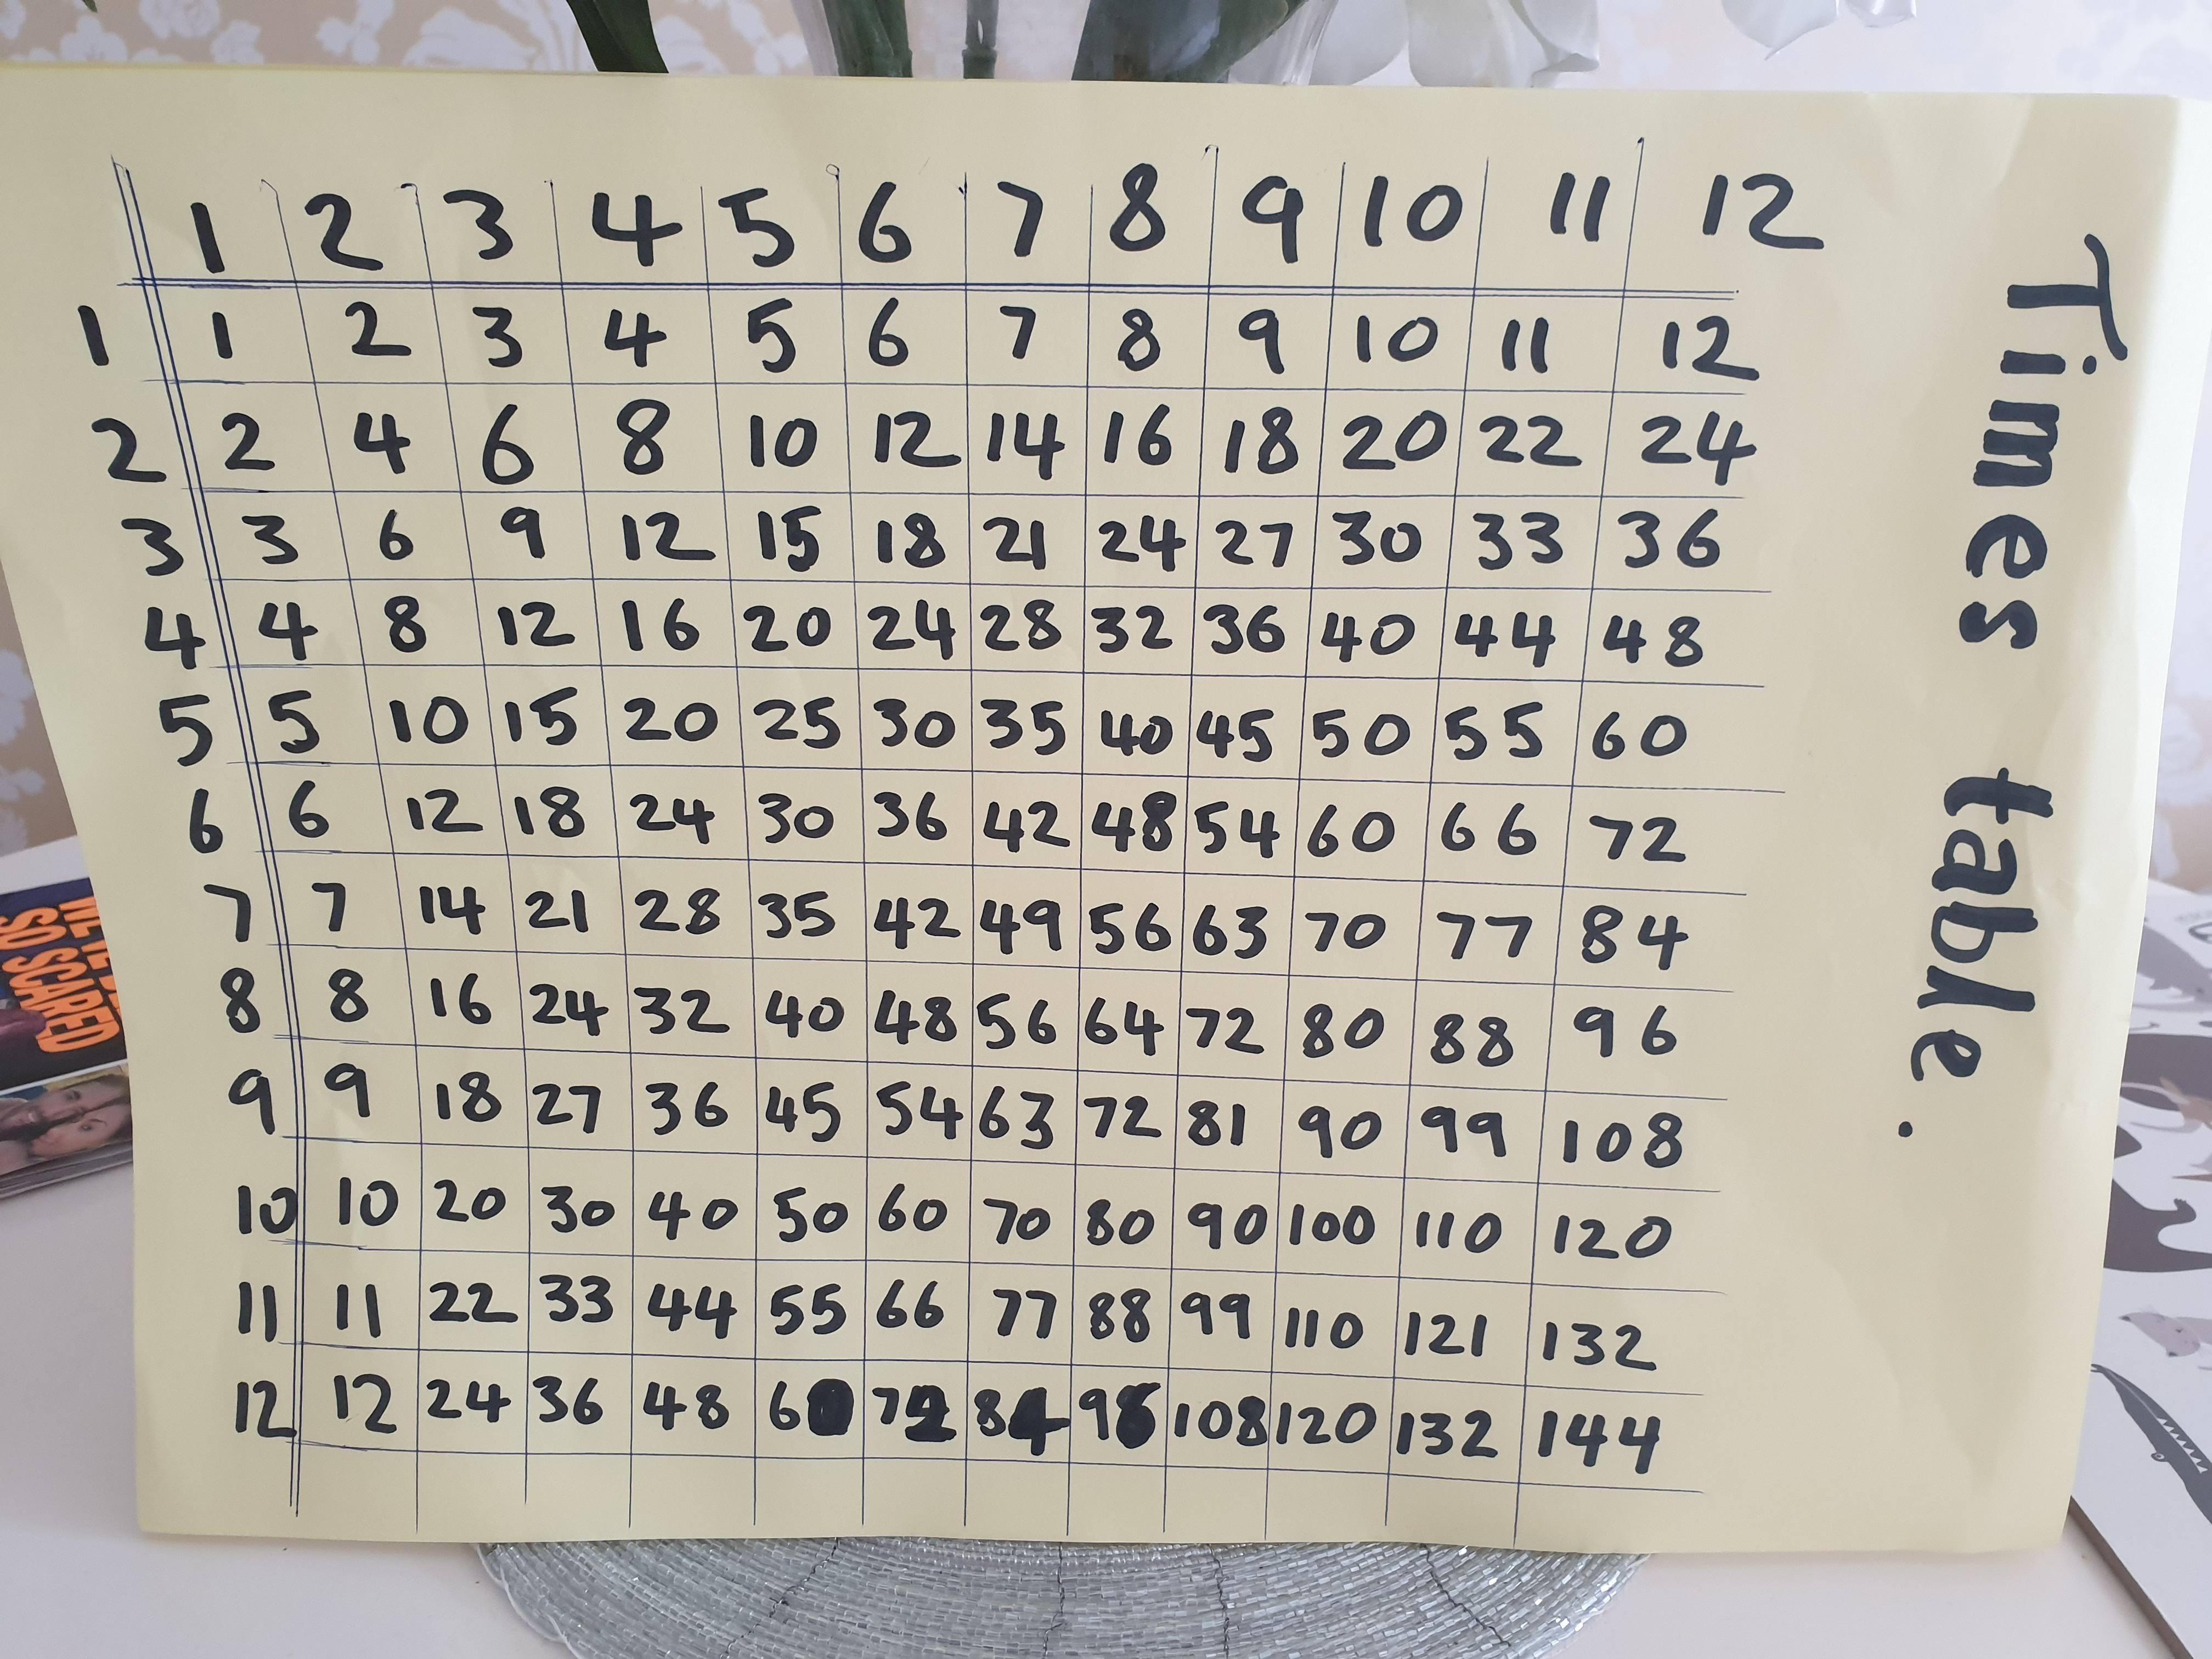 1 2 3 4 5 6 7 8 9 10 11 12
1 1 2 3 4 5 6 7 8 9 10 11 12
2 2 4 6 8 10 12 14 16 18 20 22 24
3 3 6 9 12 15 18 21 24 27 30 33 36
4 4 8 12 16 20 24 28 32 36 40 44 48
5 5 10 15 20 25 30 35 40 45 50 55 60
6 6 12 18 24 30 36 42 48 54 60 66 72
7 7 14 21 28 35 42 49 56 63 70 77 84
8 8 16 24 32 40 48 56 64 72 80 88 96
9 9 18 27 36 45 54 63 72 81 90 99 108
10 10 20 30 40 50 60 70 80 90 100 110 120
11 11 22 33 44 55 66 77 88 99 110 121 132
12 12 24 36 48 60 72 84 96 108 120 132 144
Times table.
SO SCARED